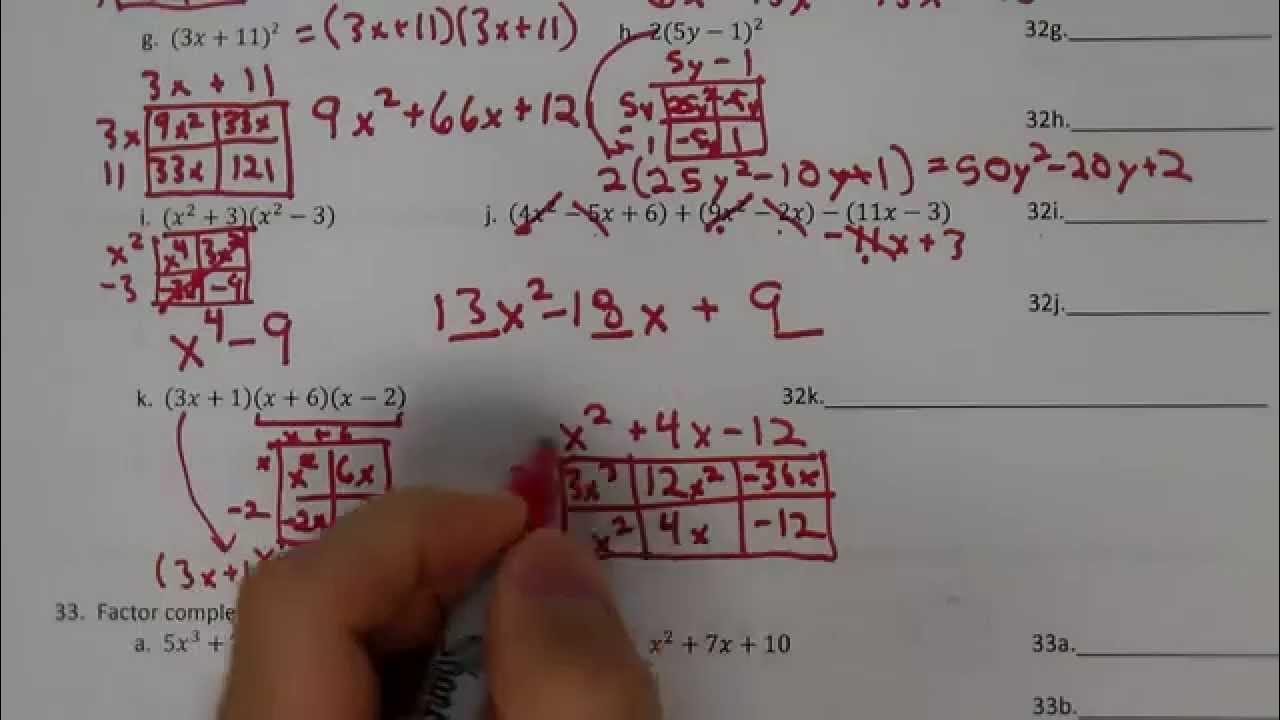 g. (3x + 11)² = (3x+11)(3x+11)
h. 2(5y − 1)²
32g.
3x + 11
5y − 1
3x 9x² 33x
9x²+66x+121
5y 25y² -5y
11 33x 121
-1 -5y 1
32h.
2(25y²-10y+1) = 50y²-20y+2
i. (x² + 3)(x² − 3)
j. (4x² − 5x + 6) + (9x² − 2x) − (11x − 3)
32i.
-11x + 3
x² x⁴ 3x²
-3 -9
x⁴-9
13x²-18x + 9
32j.
k. (3x + 1)(x + 6)(x − 2)
32k.
x + 6
x² +4x-12
x x² 6x
3x³ 12x² -36x
-2 -2x
x² 4x -12
(3x+1
33. Factor comple
a. 5x³ +
x² + 7x + 10
33a.
33b.